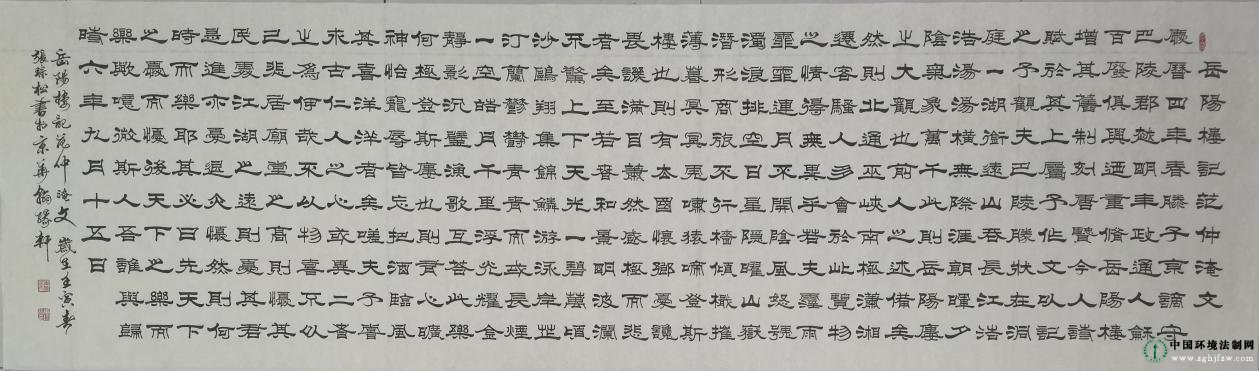 岳陽樓記范仲淹文
慶曆四年春滕子京謫守
巴陵郡越明年政通人和
百廢俱興迺重修岳陽樓
增其舊制刻唐賢今人詩
賦於其上屬予作文以記
之予觀夫巴陵勝狀在洞
庭一湖銜遠山吞長江浩
浩湯湯橫無際涯朝暉夕
陰氣象萬千此則岳陽樓
之大觀也前人之述備矣
然則北通巫峽南極瀟湘
遷客騷人多會於此覽物
之情得無異乎若夫霪雨
霏霏連月不開陰風怒號
濁浪排空日星隱曜山嶽
潛形商旅不行檣傾楫摧
薄暮冥冥虎嘯猿啼登斯
樓也則有去國懷鄉憂讒
畏譏滿目蕭然感極而悲
者矣至若春和景明波瀾
不驚上下天光一碧萬頃
沙鷗翔集錦鱗游泳岸芷
汀蘭鬱鬱青青而或長煙
一空皓月千里浮光耀金
靜影沉璧漁歌互答此樂
何極登斯樓也則有心曠
神怡寵辱皆忘把酒臨風
其喜洋洋者矣嗟夫予嘗
求古仁人之心或異二者
之為何哉不以物喜不以
己悲居廟堂之高則憂其
民處江湖之遠則憂其君
是進亦憂退亦憂然則何
時而樂耶其必曰先天下
之憂而憂後天下之樂而
樂歟噫微斯人吾誰與歸
時六年九月十五日
岳陽樓記范仲淹文 歲壬寅春
張松書於京華翰緣軒
中国环境法制网
www.zghjfzw.com